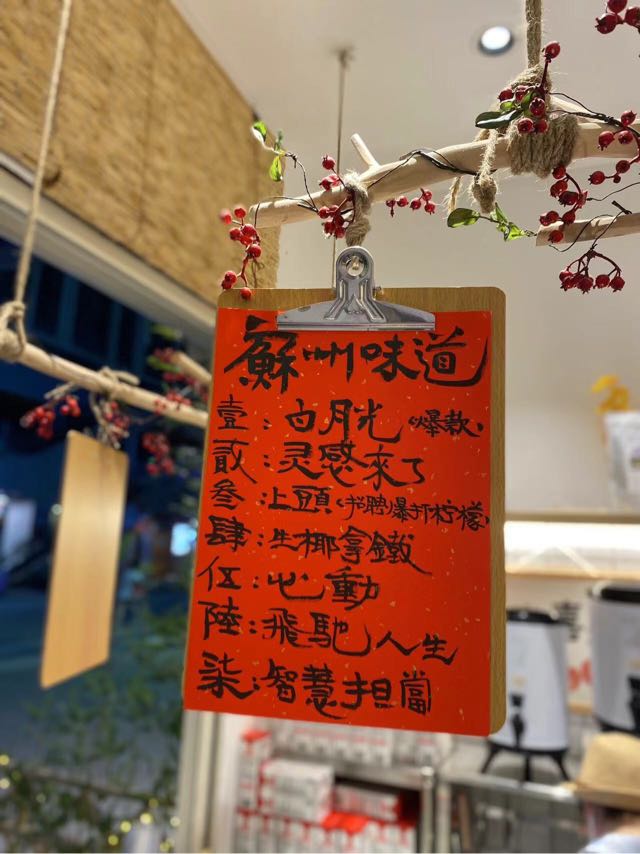 蘇州味道
壹:白月光《爆款》
貳:灵感來了
叁:上頭《招聘爆打柠檬》
肆:生椰拿鐵
伍:心動
陸:飛馳人生
柒:智慧担當